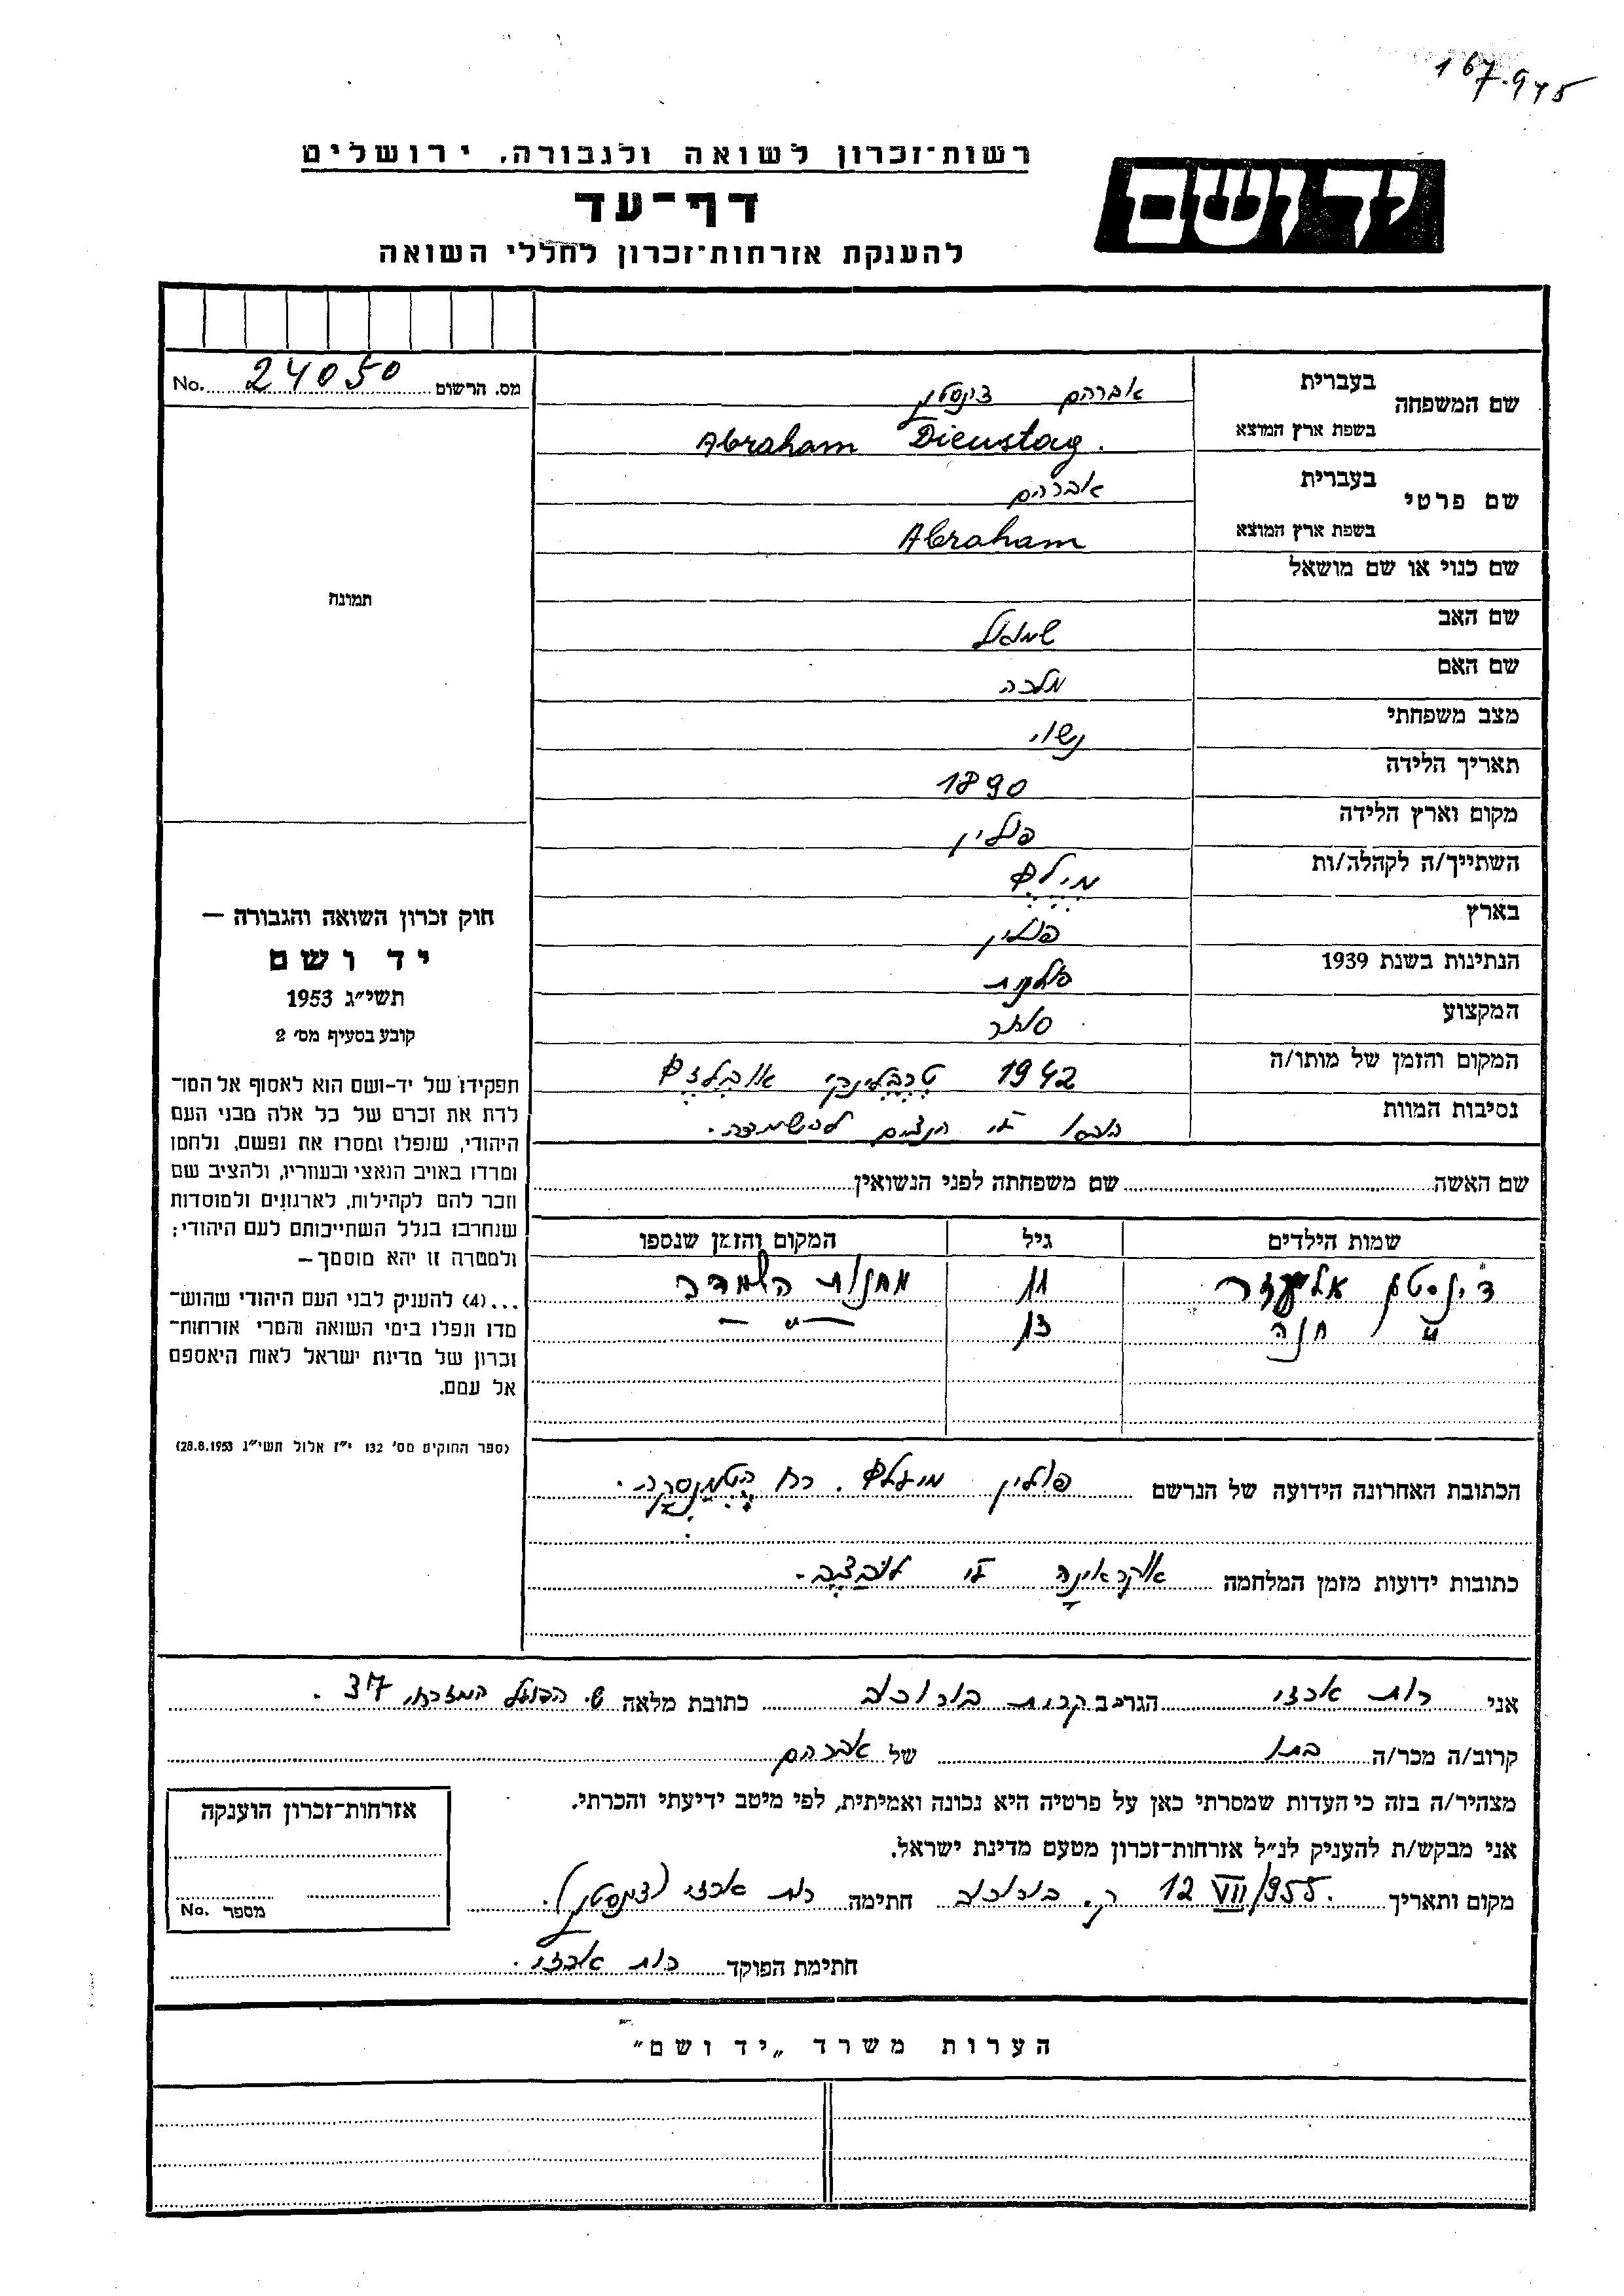 167.975
רשות־זכרון לשואה ולגבורה, ירושלים
יד ושם
דף־עד
להענקת אזרחות־זכרון לחללי השואה
מס. הרשום 24050 No.
שם המשפחה
בעברית אברהם דינסטג
בשפת ארץ המוצא Abraham Dienstag.
שם פרטי
בעברית אברהם
בשפת ארץ המוצא Abraham
שם כנוי או שם מושאל
שם האב שמואל
שם האם מלכה
מצב משפחתי נשוי
תאריך הלידה 1890
מקום וארץ הלידה פולין
השתייך/ה לקהלה/ות
בארץ פולין
הנתינות בשנת 1939 פולנית
המקצוע סוחר
המקום והזמן של מותו/ה 1942
נסיבות המוות ע״י הנצים להשמדה.
שם האשה שם משפחתה לפני הנשואין
שמות הילדים גיל המקום והזמן שנספו
דינסטג אליעזר 11 מחנות השמדה
" חנה 13 — " —
תמונה
חוק זכרון השואה והגבורה —
יד ושם
תשי״ג 1953
קובע בסעיף מס׳ 2
תפקידו של יד-ושם הוא לאסוף אל המו־
לדת את זכרם של כל אלה מבני העם
היהודי, שנפלו ומסרו את נפשם, נלחמו
ומרדו באויב הנאצי ובעוזריו, ולהציב שם
וזכר להם לקהילות, לארגונים ולמוסדות
שנחרבו בגלל השתייכותם לעם היהודי;
ולמטרה זו יהא מוסמך —
...(4) להעניק לבני העם היהודי שהוש־
מדו ונפלו בימי השואה והמרי אזרחות־
זכרון של מדינת ישראל לאות היאספם
אל עמם.
(ספר החוקים מס׳ 132 י״ז אלול תשי״ג 28.8.1953)
הכתובת האחרונה הידועה של הנרשם פולין רח
כתובות ידועות מזמן המלחמה אוקראינה ע״י
אני רות ארזי הגר ב קרית בורוכוב כתובת מלאה ש. הפועל המזרחי 37.
קרוב/ה מכר/ה בתו של אברהם
מצהיר/ה בזה כי העדות שמסרתי כאן על פרטיה היא נכונה ואמיתית, לפי מיטב ידיעתי והכרתי.
אני מבקש/ת להעניק לנ״ל אזרחות־זכרון מטעם מדינת ישראל.
מקום ותאריך 12 VII/955. ק. בורוכוב חתימה רות ארזי (דינסטג).
חתימת הפוקד רות ארזי.
אזרחות־זכרון הוענקה
מספר No.
הערות משרד „יד ושם"